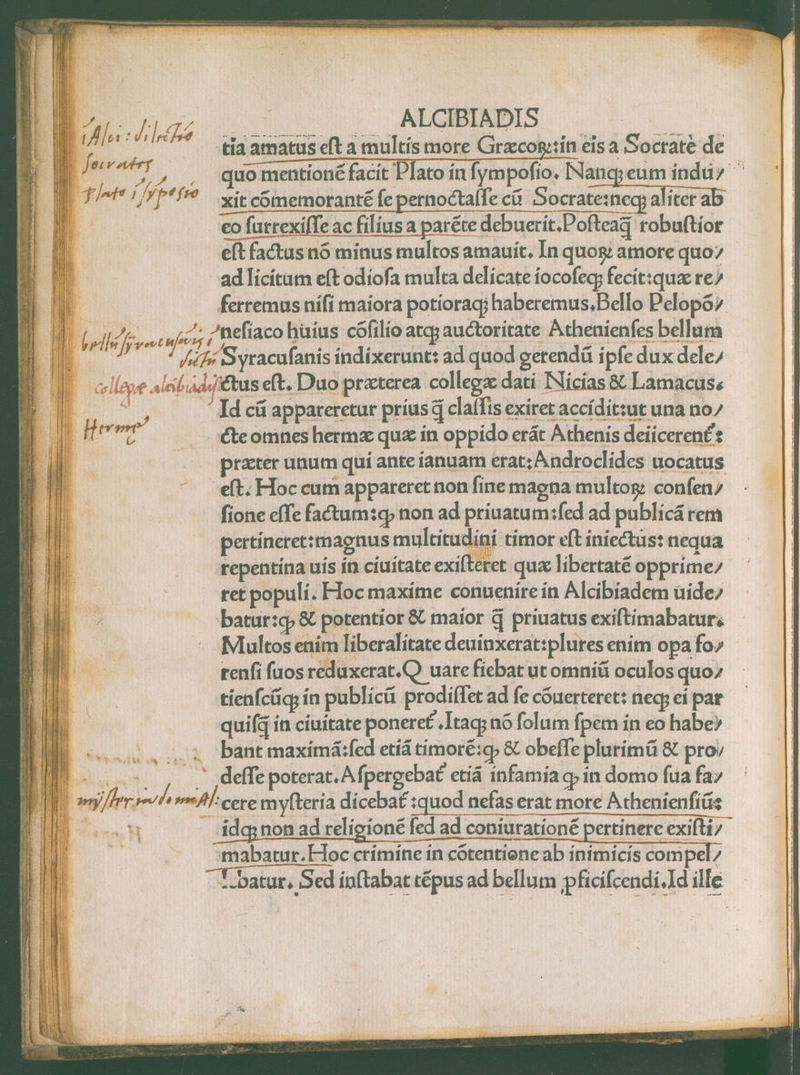 ALCIBIADIS
tia amatus eſt a multis more Græcoꝝ:in eis a Socrate de
quo mentionē facit Plato in ſympoſio. Nanq; eum indu/
xit cōmemorantē ſe pernoctaſſe cū Socrate:neq; aliter ab
eo ſurrexiſſe ac filius a parēte debuerit.Poſteaq̃ robuſtior
eſt factus nō minus multos amauit. In quoꝝ amore quo/
ad licitum eſt odioſa multa delicate iocoſeq; fecit:quæ re/
ferremus niſi maiora potioraq; haberemus.Bello Pelopō/
neſiaco huius cōſilio atq; auctoritate Athenienſes bellum
Syracuſanis indixerunt: ad quod gerendū ipſe dux dele/
ctus eſt. Duo præterea collegæ dati Nicias & Lamacus.
Id cū appareretur prius q̃ claſſis exiret accidit:ut una no/
cte omnes hermæ quæ in oppido erāt Athenis deiicerent᷑:
præter unum qui ante ianuam erat:Androclides uocatus
eſt. Hoc cum appareret non ſine magna multoꝝ conſen/
ſione eſſe factum:ꝙ non ad priuatum:ſed ad publicā rem
pertineret:magnus multitudini timor eſt iniectus: nequa
repentina uis in ciuitate exiſteret quæ libertatē opprime/
ret populi. Hoc maxime conuenire in Alcibiadem uide/
batur:ꝙ & potentior & maior q̃ priuatus exiſtimabatur.
Multos enim liberalitate deuinxerat:plures enim opa fo/
renſi ſuos reduxerat.Q uare fiebat ut omniū oculos quo/
tienſcūq; in publicū prodiſſet ad ſe cōuerteret: neq; ei par
quiſq̃ in ciuitate poneret᷑.Itaq; nō ſolum ſpem in eo habe/
bant maximā:ſed etiā timorē:ꝙ & obeſſe plurimū & pro/
deſſe poterat.Aſpergebat᷑ etiā infamia ꝙ in domo ſua fa/
cere myſteria dicebat᷑:quod nefas erat more Athenienſiū:
idq; non ad religionē ſed ad coniurationē pertinere exiſti/
mabatur.Hoc crimine in cōtentione ab inimicis compel/
batur. Sed inſtabat tēpus ad bellum ꝓficiſcendi.Id ille